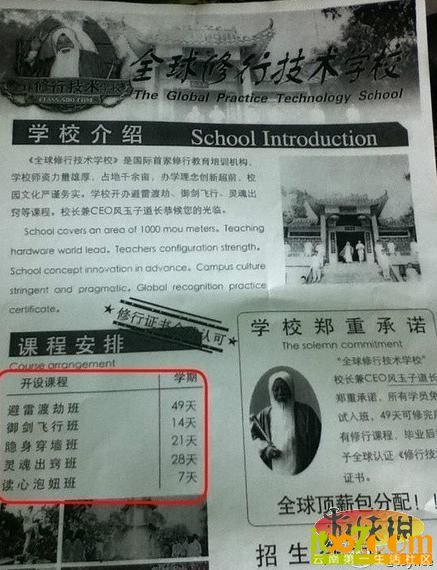 修行技术学校
全球修行技术学校
The Global Practice Technology School
学校介绍 School Introduction
《全球修行技术学校》是国际首家修行教育培训机构，
学校师资力量雄厚、占地千余亩、办学理念创新超前、校
园文化严谨务实。学校开办避雷渡劫、御剑飞行、灵魂出
窍等课程。校长兼CEO风玉子道长恭候您的光临。
School covers an area of 1000 mou meters. Teaching
hardware world lead. Teachers configuration strength.
School concept innovation in advance. Campus culture
stringent and pragmatic. Global recognition practice
certificate.
修行证书 认可
课程安排
Course arrangement
开设课程 学期
避雷渡劫班 49天
御剑飞行班 14天
隐身穿墙班 21天
灵魂出窍班 28天
读心泡妞班 7天
学校郑重承诺
The solemn commitment
"全球修行技术学校"
校长兼CEO风玉子道长
郑重承诺，所有学员免
试入班，49天可修完
有修行课程，毕业后
予全球认证《修行技
证书。
全球顶薪包分配！！
招生
云南第一生活社区